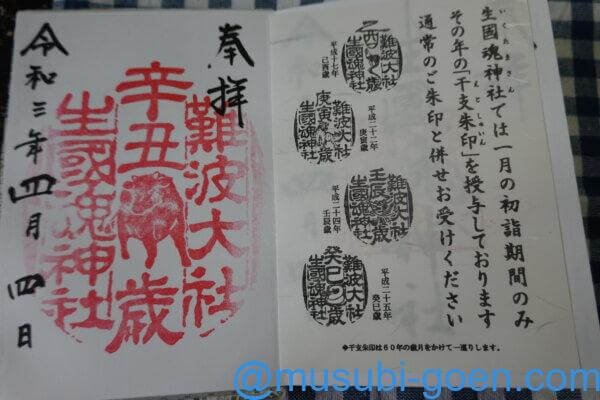 いくたまさん
生國魂神社では一月の初詣期間のみ
えとしゅいん
その年の「干支朱印」を授与しております
通常のご朱印と併せお受けください
難波大社
乙酉歳
生國魂神社
平成十七年
難波大社
庚寅歳
生國魂神社
平成二十二年
庚寅歳
難波大社
壬辰歳
生國魂神社
平成二十四年
壬辰歳
難波大社
癸巳歳
生國魂神社
平成二十五年
癸巳歳
◆干支朱印は60年の歳月をかけて一巡りします。
奉拝
難波大社
辛丑歳
生國魂神社
令和三年四月四日
@musubi-goen.com